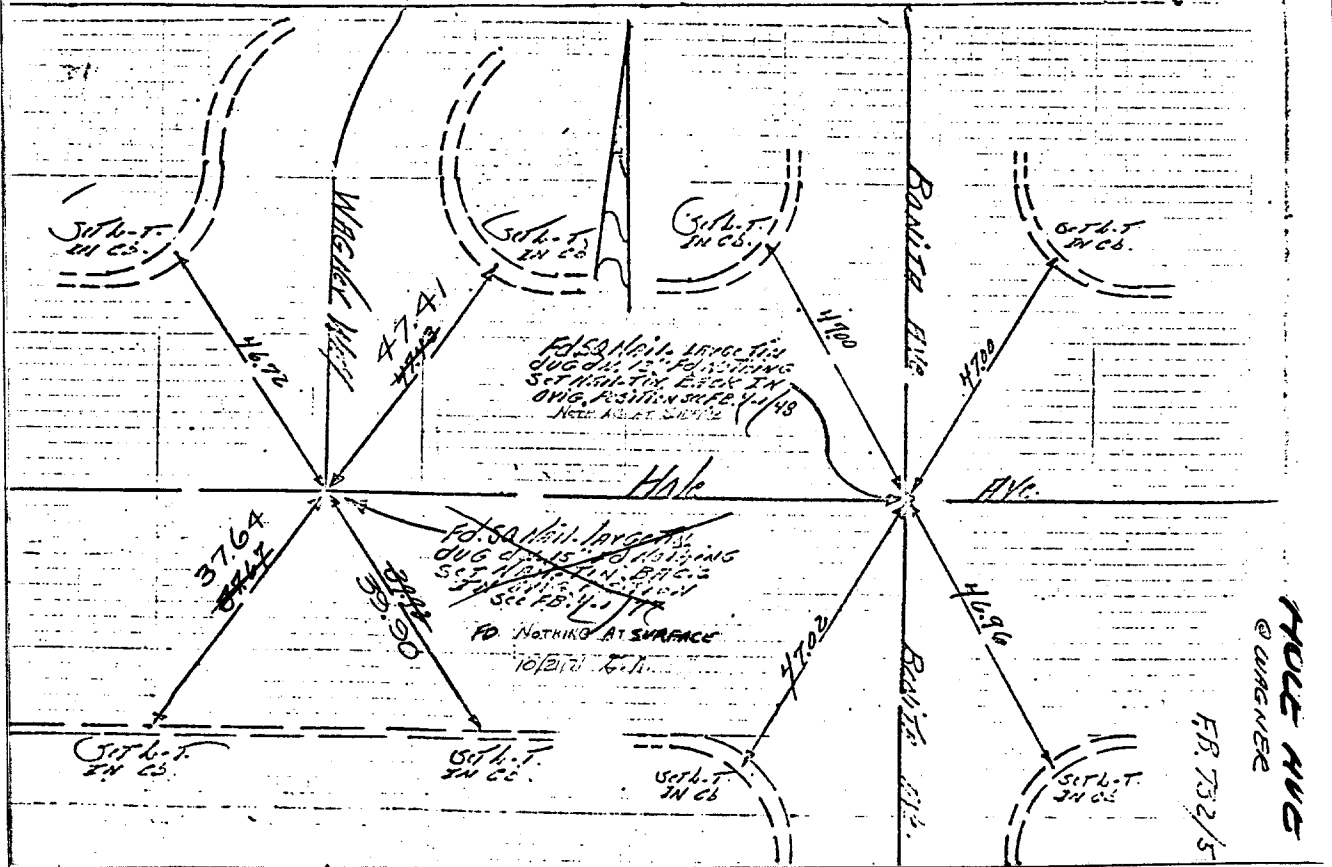 Set L-T.
IN Cb.
46.72
WAGNER AVE.
47.41
47.43
Set L-T.
IN Cb
Set L-T.
IN Cb.
47.00
BONITA AVE
Set L-T
IN Cb.
47.00
Fd SQ Nail- Large Tin
dug dn. 15" Fd nothing
Set Nail-Tin Back IN
Orig. Position See FB.
Hole
AVe.
37.64
39.90
Fd. SQ Nail- large Tin
dug dn. 15" Fd nothing
Set Nail-Tin Back
Position
See FB.
FD. NOTHING AT SURFACE
47.02
46.96
Bonita Ave.
Set L-T.
IN Cb.
Set L-T.
IN Cb.
Set L-T.
IN Cb
Set L-T.
IN Cb
HOLE AVE
@ WAGNER
F.B. 732/5